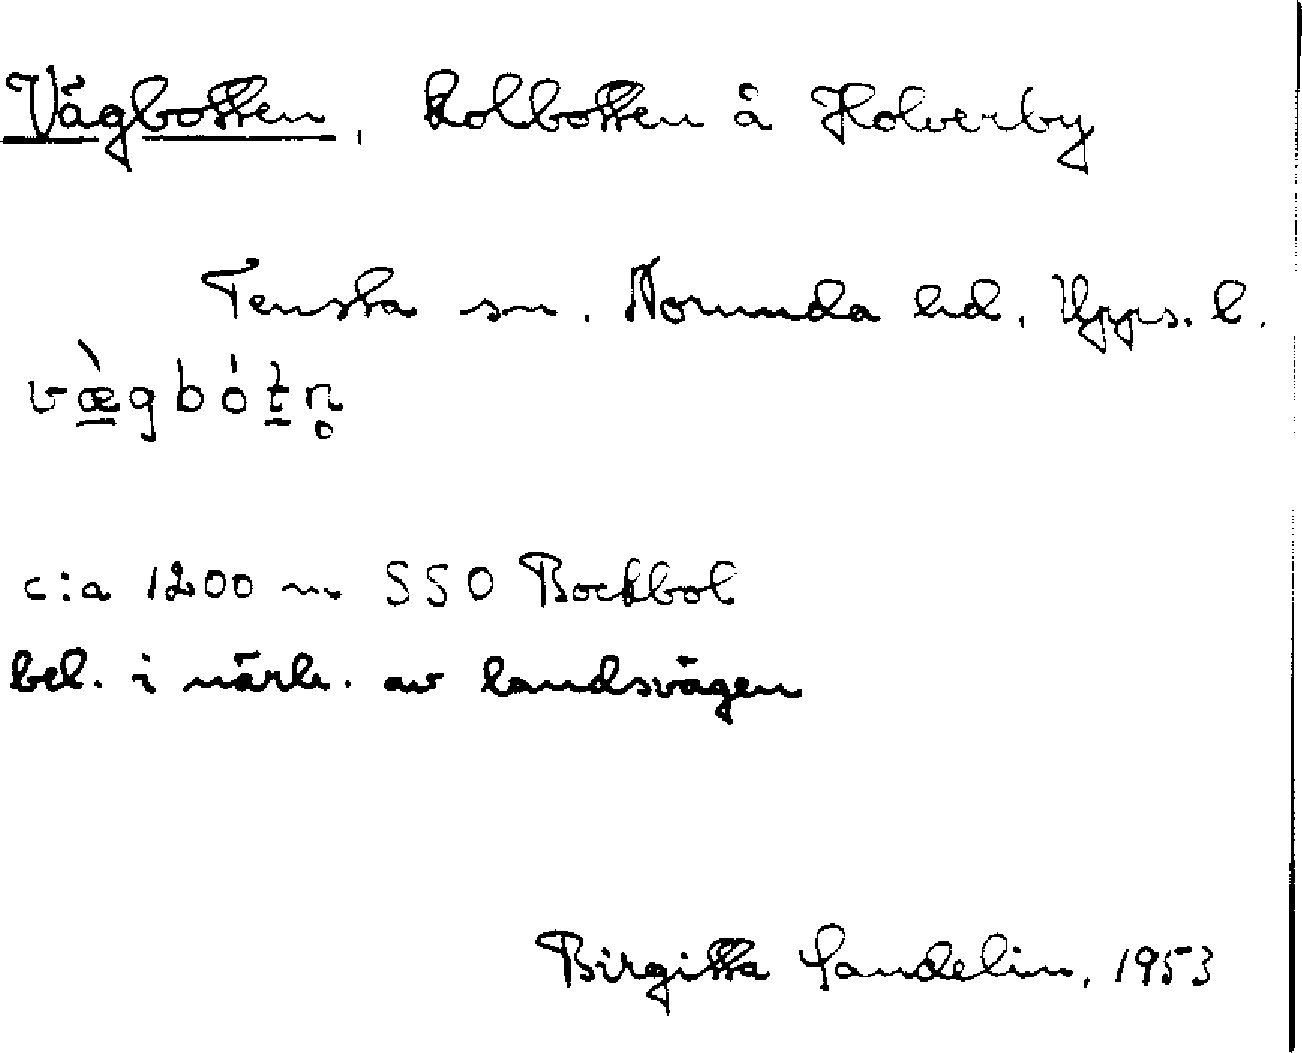 Vägbotten, Kolbotten å Holverby
Tensta sn. Norunda hd. Upps. l.
væ̀gbótn̥
c:a 1200 m SSO Bockbol
bel. i närh. av landsvägen
Birgitta Sandelin, 1953